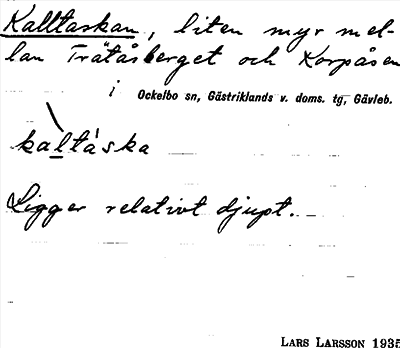 Kalltaskan, liten myr mel-
lan Trätåsberget och Korpåsen
i Ockelbo sn, Gästriklands v. doms. tg, Gävleb.
kaltàska
Ligger relativt djupt.
LARS LARSSON 1935